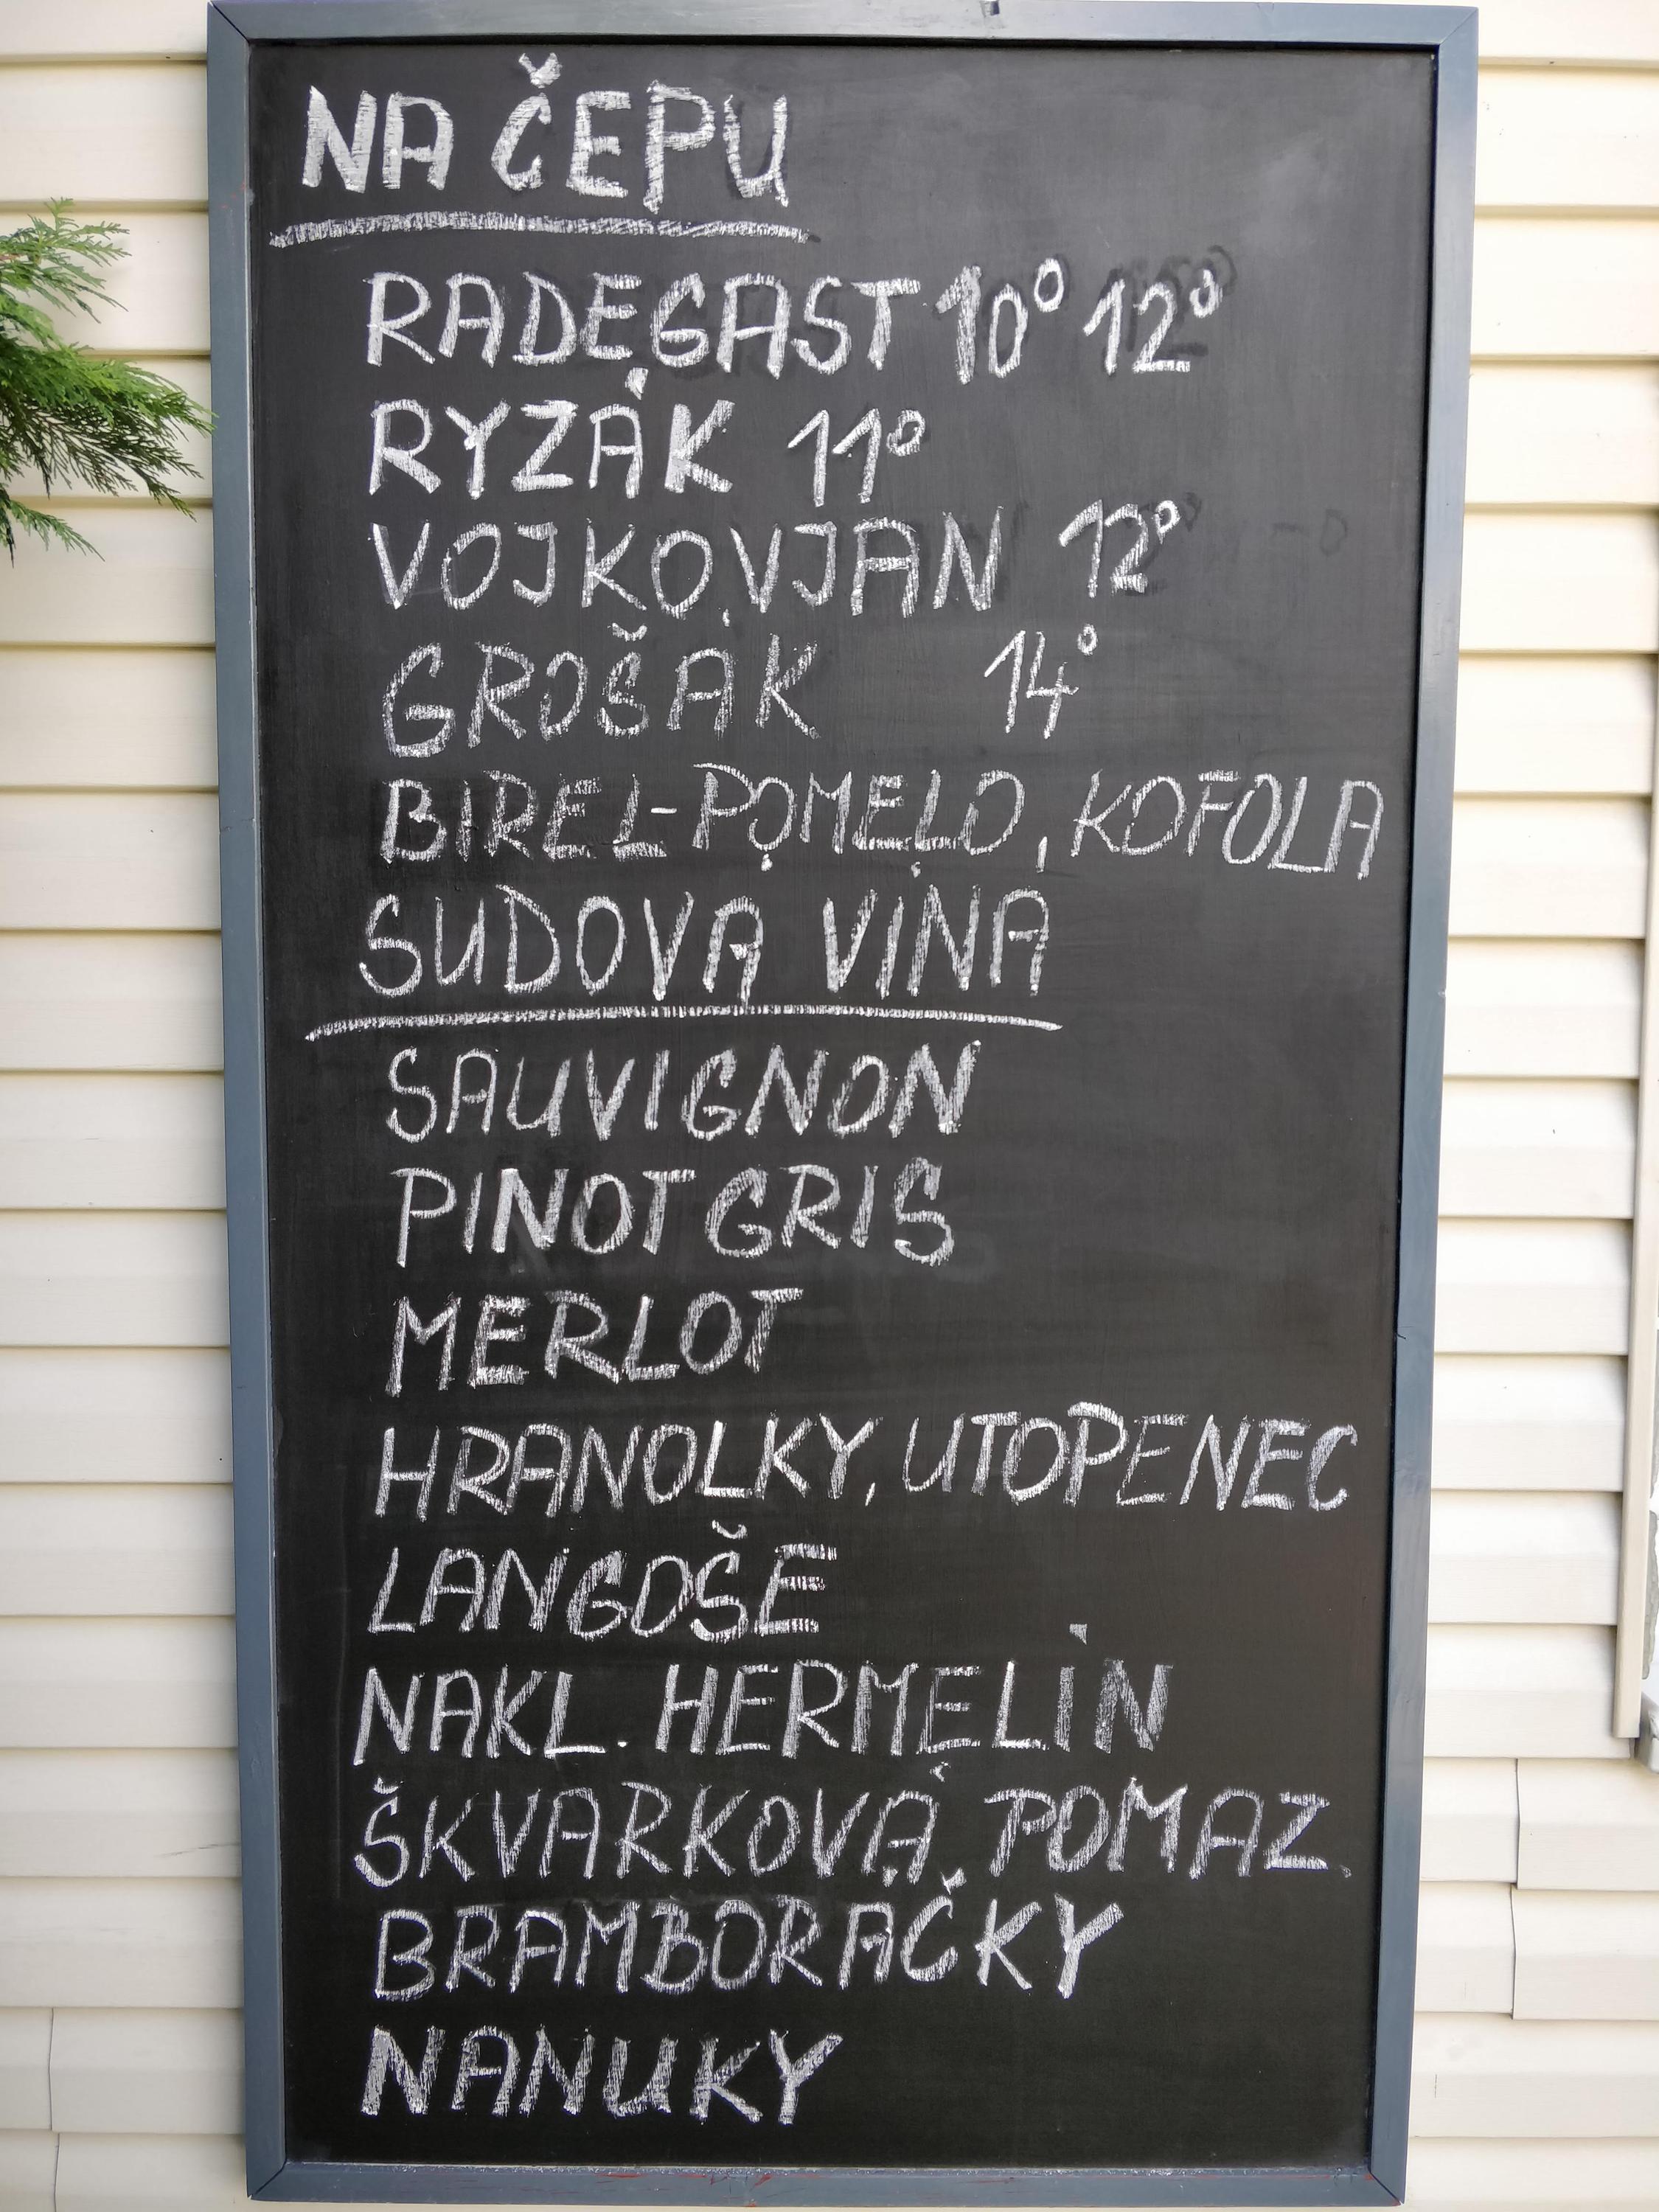 NA ČEPU
RADEGAST 10° 12°
RYZÁK 11°
VOJKOVJAN 12°
GROŠÁK 14°
BIREL-POMELO, KOFOLA
SUDOVÁ VÍNA
SAUVIGNON
PINOT GRIS
MERLOT
HRANOLKY, UTOPENEC
LANGOŠE
NAKL. HERMELÍN
ŠKVARKOVÁ POMAZ.
BRAMBORÁČKY
NANUKY